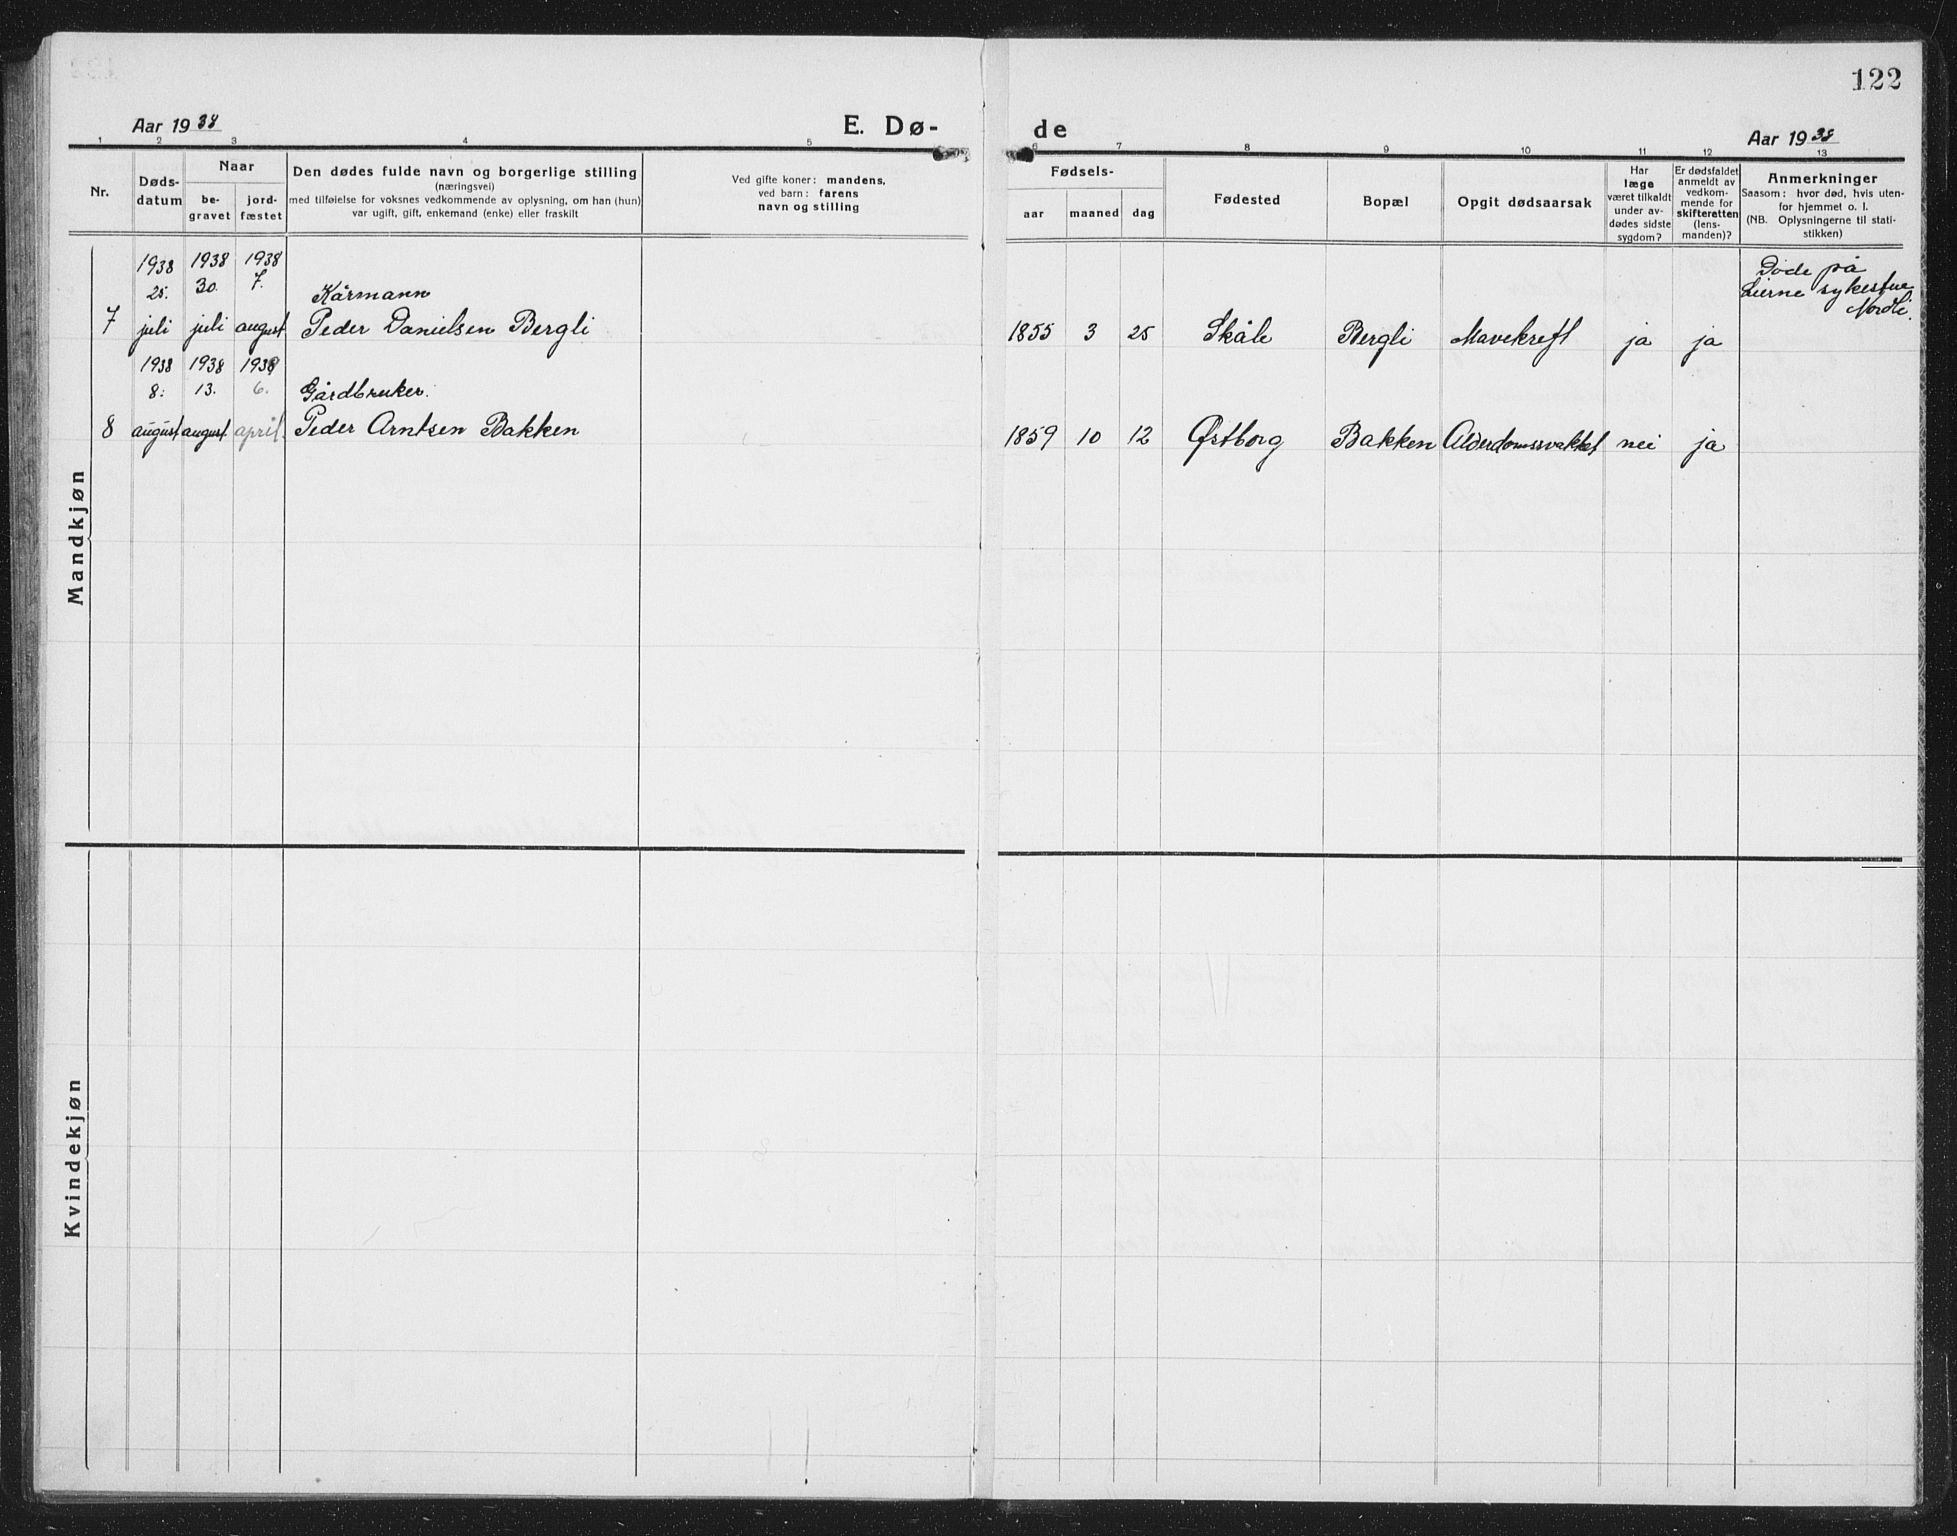 122
Aar 1938
E. Dø-
de
Aar 1938
1 2 3 4 5 6 7 8 9 10 11 12 13
Nr.
Døds-
datum
Naar
be-
gravet
jord-
fæstet
Den dødes fulde navn og borgerlige stilling
(næringsvei)
med tilføielse for voksnes vedkommende av oplysning, om han (hun)
var ugift, gift, enkemand (enke) eller fraskilt
Ved gifte koner: mandens,
ved barn: farens
navn og stilling
Fødsels-
aar maaned dag
Fødested
Bopæl
Opgit dødsaarsak
Har
læge
været tilkaldt
under av-
dødes sidste
sygdom?
Er dødsfaldet
anmeldt av
vedkom-
mende for
skifteretten
(lens-
manden)?
Anmerkninger
Saasom: hvor død, hvis uten-
for hjemmet o. l.
(NB. Oplysningerne til stati-
stikken)
Mandkjøn
1938 1938 1938
25. 30. 7. Kårmann
7 juli juli august Peder Danielsen Bergli 1855 3 25 Skåle Bergli Mavekreft ja ja
Døde på
Lierne sykestue
Nordli.
1938 1938 1939
8. 13. 6. Gårdbruker.
8 august august april. Peder Arntsen Bakken 1859 10 12 Østborg Bakken Alderdomssvakhet nei ja
Kvindekjøn